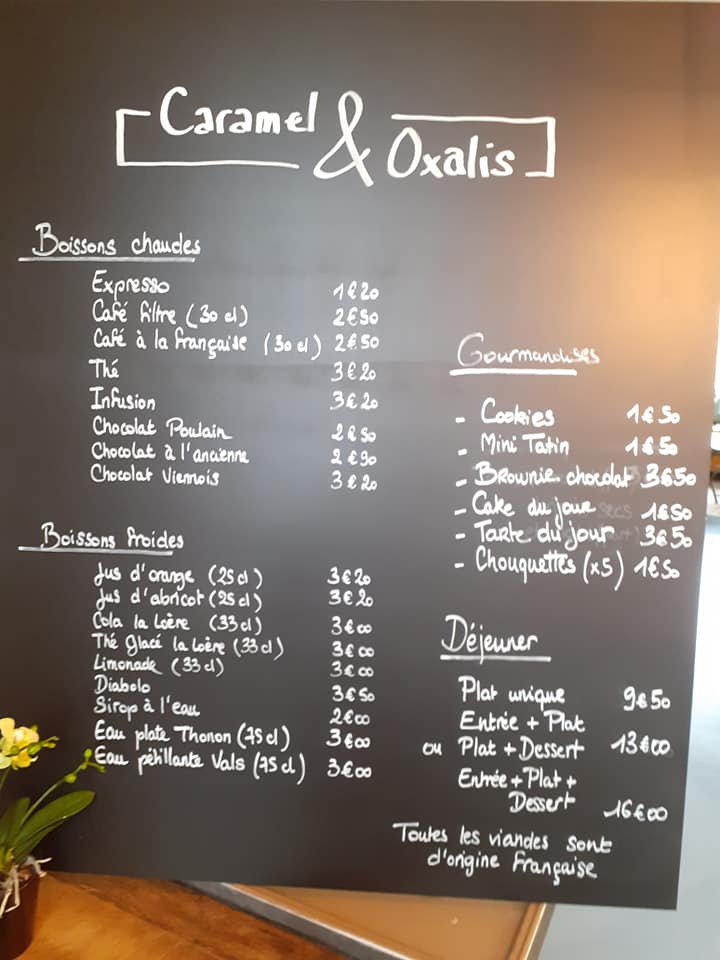 Caramel & Oxalis
Boissons chaudes
Expresso 1€20
Café filtre (30 cl) 2€50
Café à la française (30 cl) 2€50
Thé 3€20
Infusion 3€20
Chocolat Poulain 2€50
Chocolat à l'ancienne 2€90
Chocolat Viennois 3€20
Boissons froides
Jus d'orange (25 cl) 3€20
Jus d'abricot (25 cl) 3€20
Cola la Loère (33 cl) 3€00
Thé Glacé la Loère (33 cl) 3€00
Limonade (33 cl) 3€00
Diabolo 3€50
Sirop à l'eau 2€00
Eau plate Thonon (75 cl) 3€00
Eau pétillante Vals (75 cl) 3€00
Gourmandises
- Cookies 1€50
- Mini Tatin 1€50
- Brownie chocolat 3€50
- Cake du jour 1€50
- Tarte du jour 3€50
- Chouquettes (x5) 1€50
Déjeuner
Plat unique 9€50
Entrée + Plat
ou Plat + Dessert 13€00
Entrée + Plat +
Dessert 16€00
Toutes les viandes sont
d'origine Française